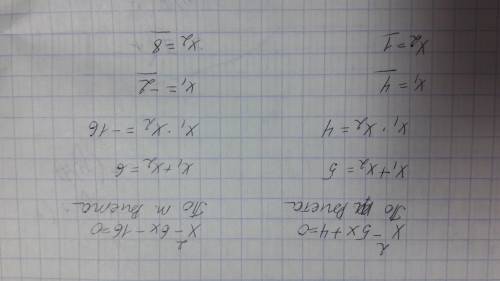 x²-5x+4=0
По т Виета
x₁+x₂=5
x₁·x₂=4
x₁=4
x₂=1
x²-6x-16=0
По т Виета
x₁+x₂=6
x₁·x₂=-16
x₁=-2
x₂=8